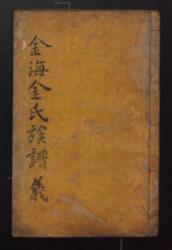 金海金氏族譜 義